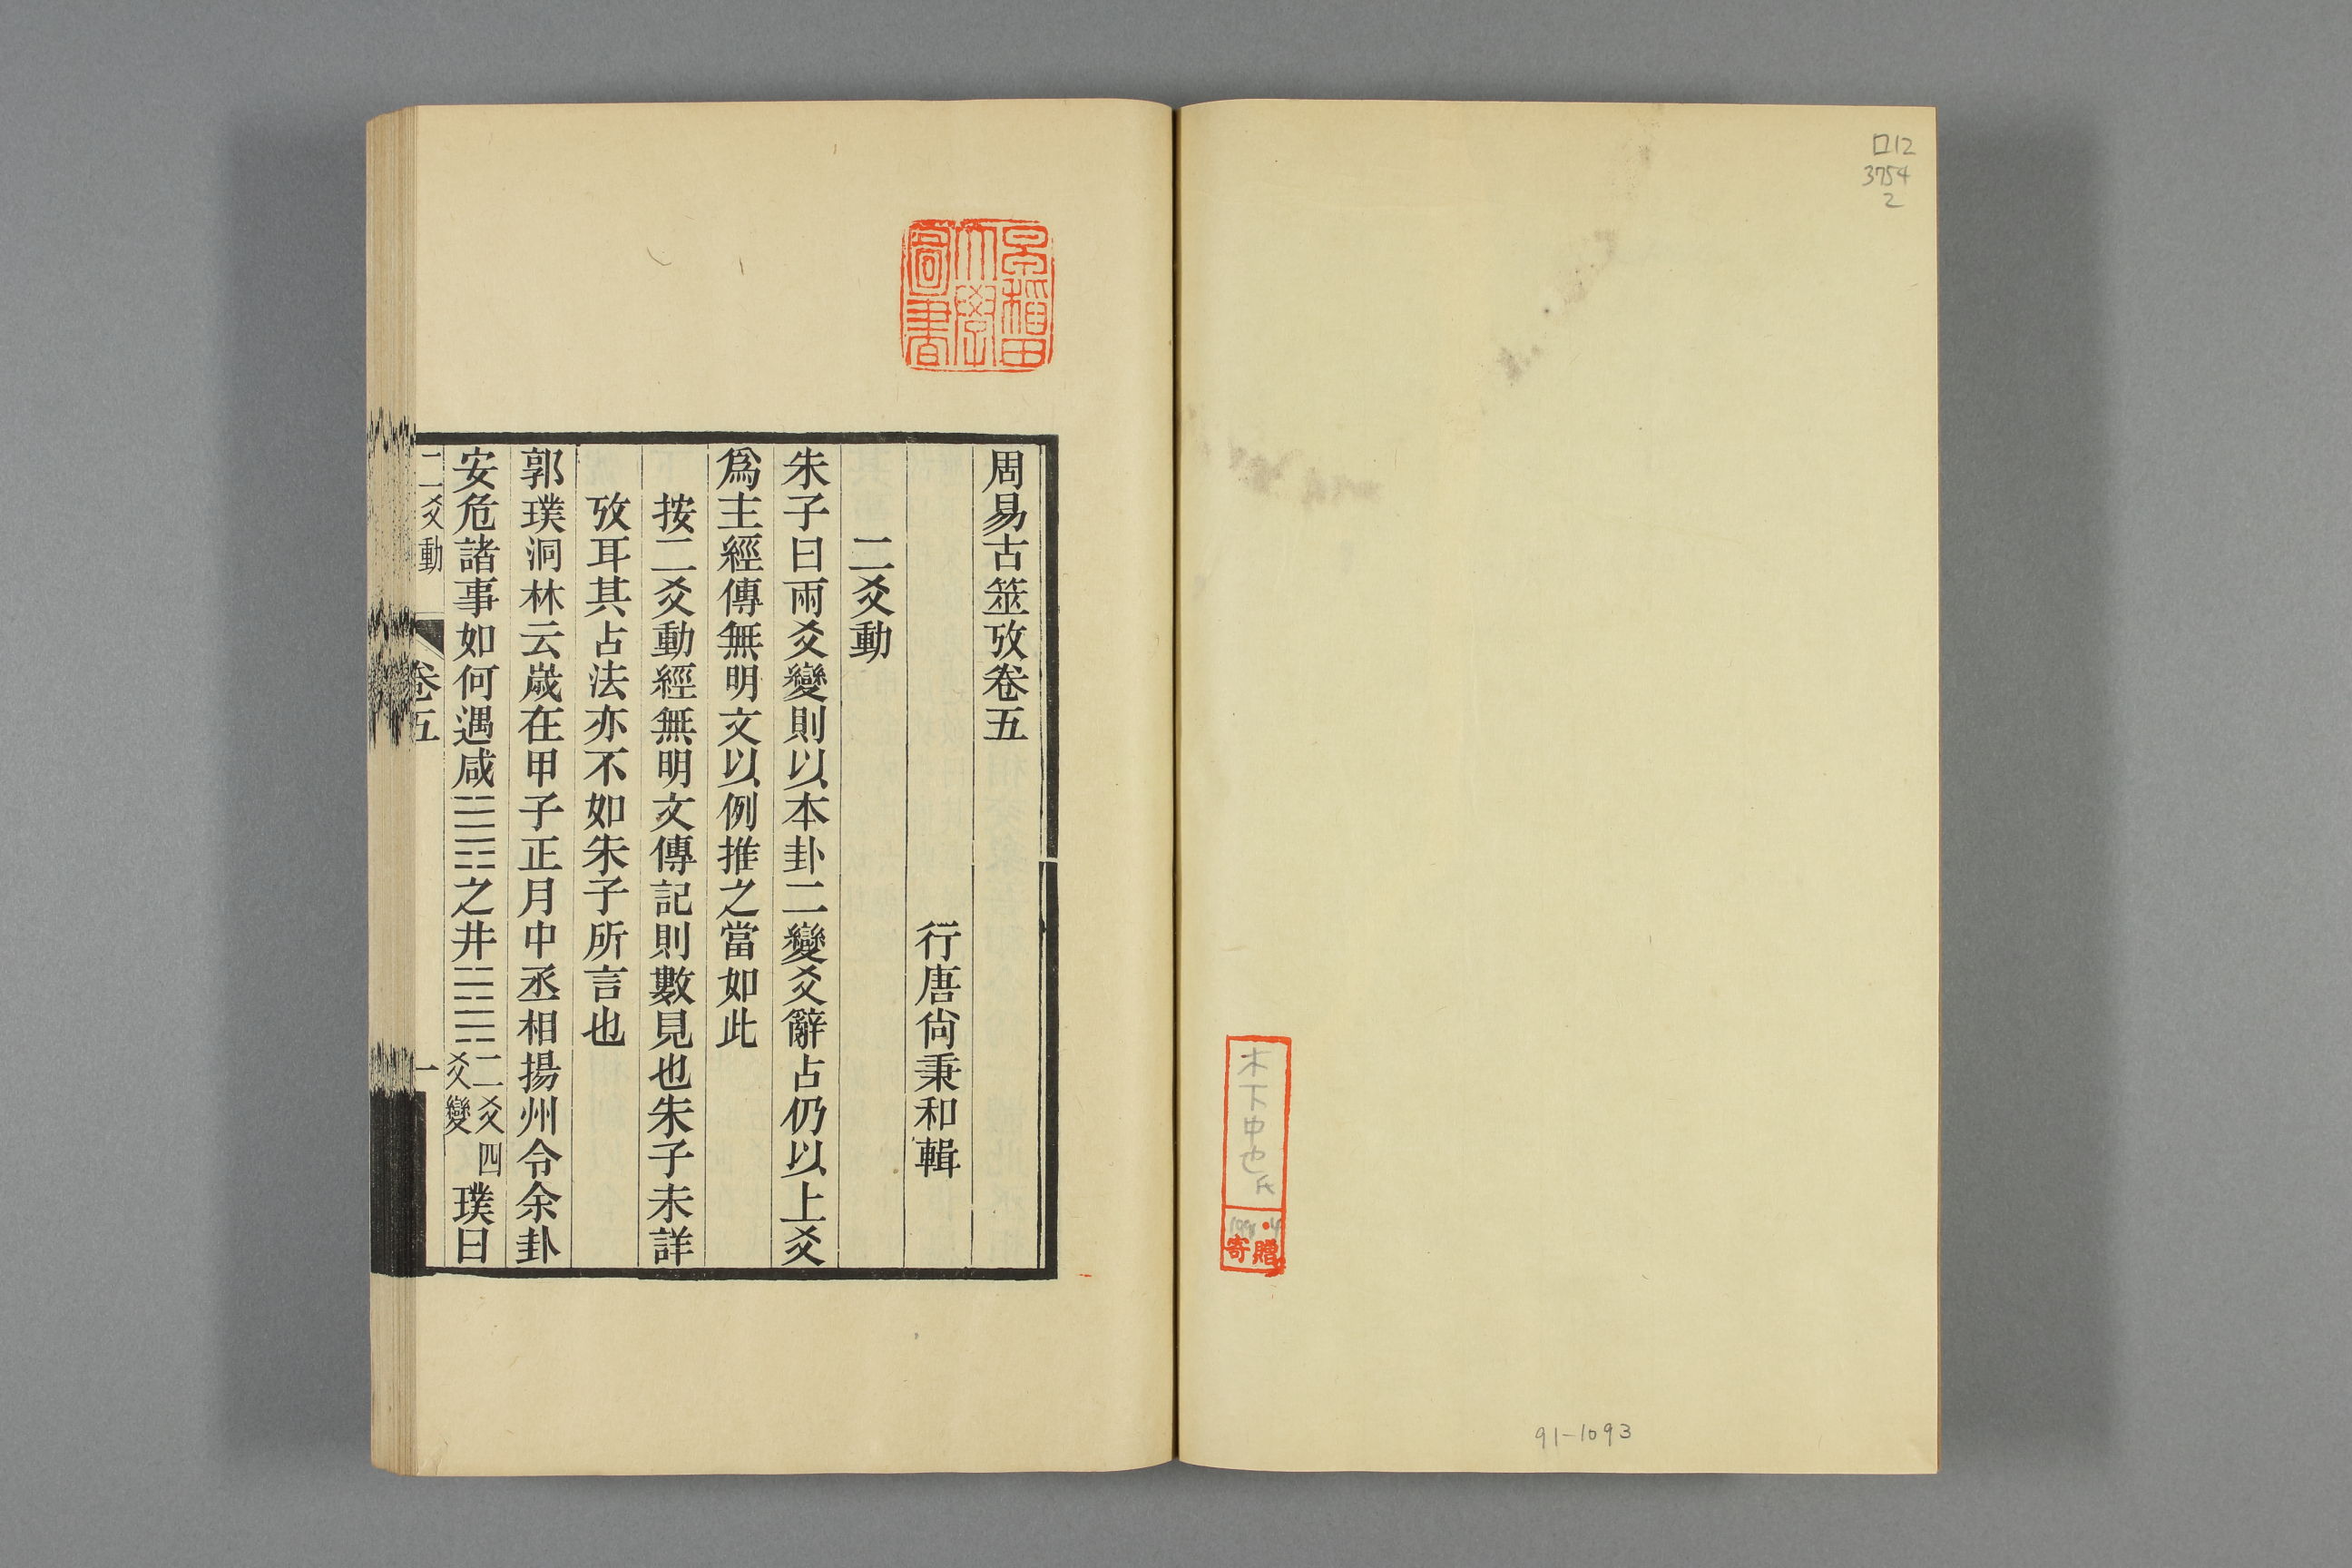 口12
3754
2
木下中也氏
寄贈
91-1093
早稻田
大學
圖書
周易古筮攷卷五
行唐尙秉和輯
二爻動
朱子曰兩爻變則以本卦二變爻辭占仍以上爻
爲主經傳無明文以例推之當如此
按二爻動經無明文傳記則數見也朱子未詳
攷耳其占法亦不如朱子所言也
郭璞洞林云歲在甲子正月中丞相揚州令余卦
安危諸事如何遇咸䷞之井䷯二爻四爻變璞曰
二爻動 卷五 一